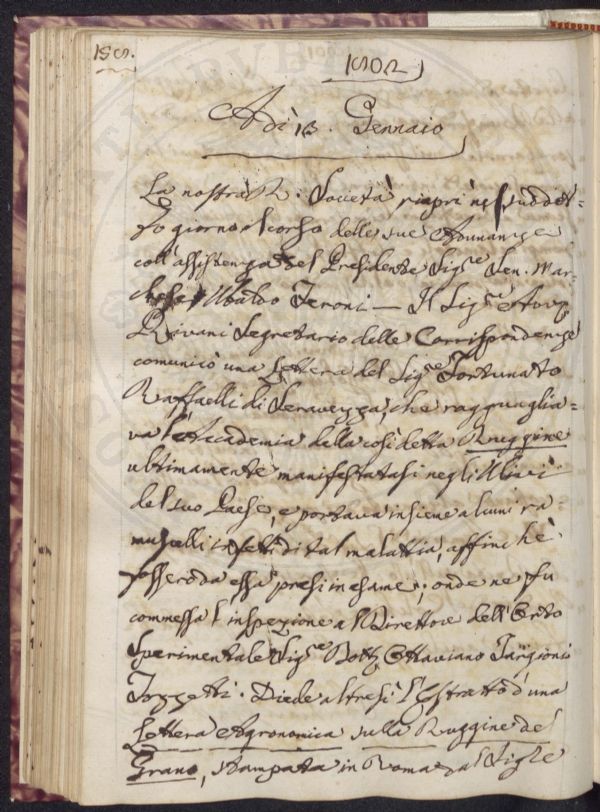 188.
1802
Adì 13. Gennaio
La nostra R. Società riaprì nel suddet=
to giorno il corso delle sue Adunanze
coll'assistenza del Presidente Sig.e Sen. Mar-
chese Ubaldo Feroni — Il Sig.e Avv.
Rivani Segretario delle Corrispondenze
comunicò una Lettera del Sig.e Fortunato
Raffaelli di Seravezza, che ragguaglia=
va l'Accademia della così detta Ruggine
ultimamente manifestatasi negli Ulivi
del suo Paese, e portava insieme alcuni ra
muscelli infetti di tal malattia, affinchè
fossero da essa presi in esame; onde ne fu
commessa l'inspezione al Direttore dell'Orto
Sperimentale Sig.e Dott. Ottaviano Targioni
Tozzetti. Diede altresì l'Estratto d'una
Lettera Agronomica sulla Ruggine del
Grano, stampata in Roma dal Sig.e